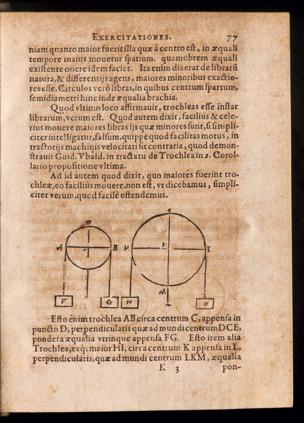 EXERCITATIONES. 77
niam quanto maior fuerit illa quæ à centro est, in æquali
tempore maius mouetur spatium. quamobrem æquali
existente onere idem faciet. Ita enim diuerat de libraru
natura, & differentijs agens, maiores minoribus exactio-
res esse. Circulos verò libras, in quibus centrum spartum,
semidiametri hinc inde æqualia brachia.
Quod vltimo loco affirmauit, trochleas esse instar
librarum, verum est. Quod autem dixit, facilius & cele-
rius mouere maiores libras ijs quæ minores sunt, si simpli-
citer intelligatur, falsum, quippe quod facilitas motus, in
tractorijs machinis velocitati sit contraria, quod demon-
strauit Guid. Vbald. in tractatu de Trochlea in 2. Corol-
lario propositione vltima.
Ad id autem quod dixit, quo maiores fuerint tro-
chleæ, eo facilius mouere, non est, vt dicebamus, simpli-
citer verum, quod facile ostendemus.
A B H K I
F G N M O
Esto enim trochlea AB circa centrum C, appensa in
puncto D, perpendicularis quæ ad mundi centrum DCE,
pondera æqualia vtrinque appensa FG. Esto item alia
Trochlea, eaq; maior HI, circa centrum K appensa in L,
perpendicularis, quæ ad mundi centrum LKM, æqualia
K 3 pon-